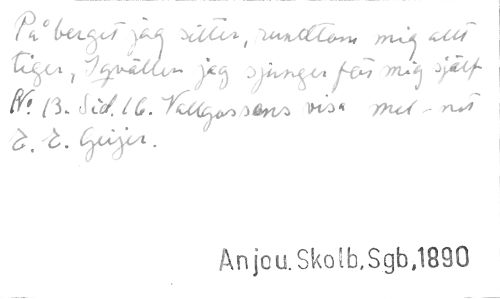 På berget jag sitter, rundtom mig allt
tiger, I qvällen jag sjunger för mig sjelf
No 13. Sid. 16. Vallgossens visa mel-not
E. E. Geijer.
Anjou. Skolb, Sgb, 1890